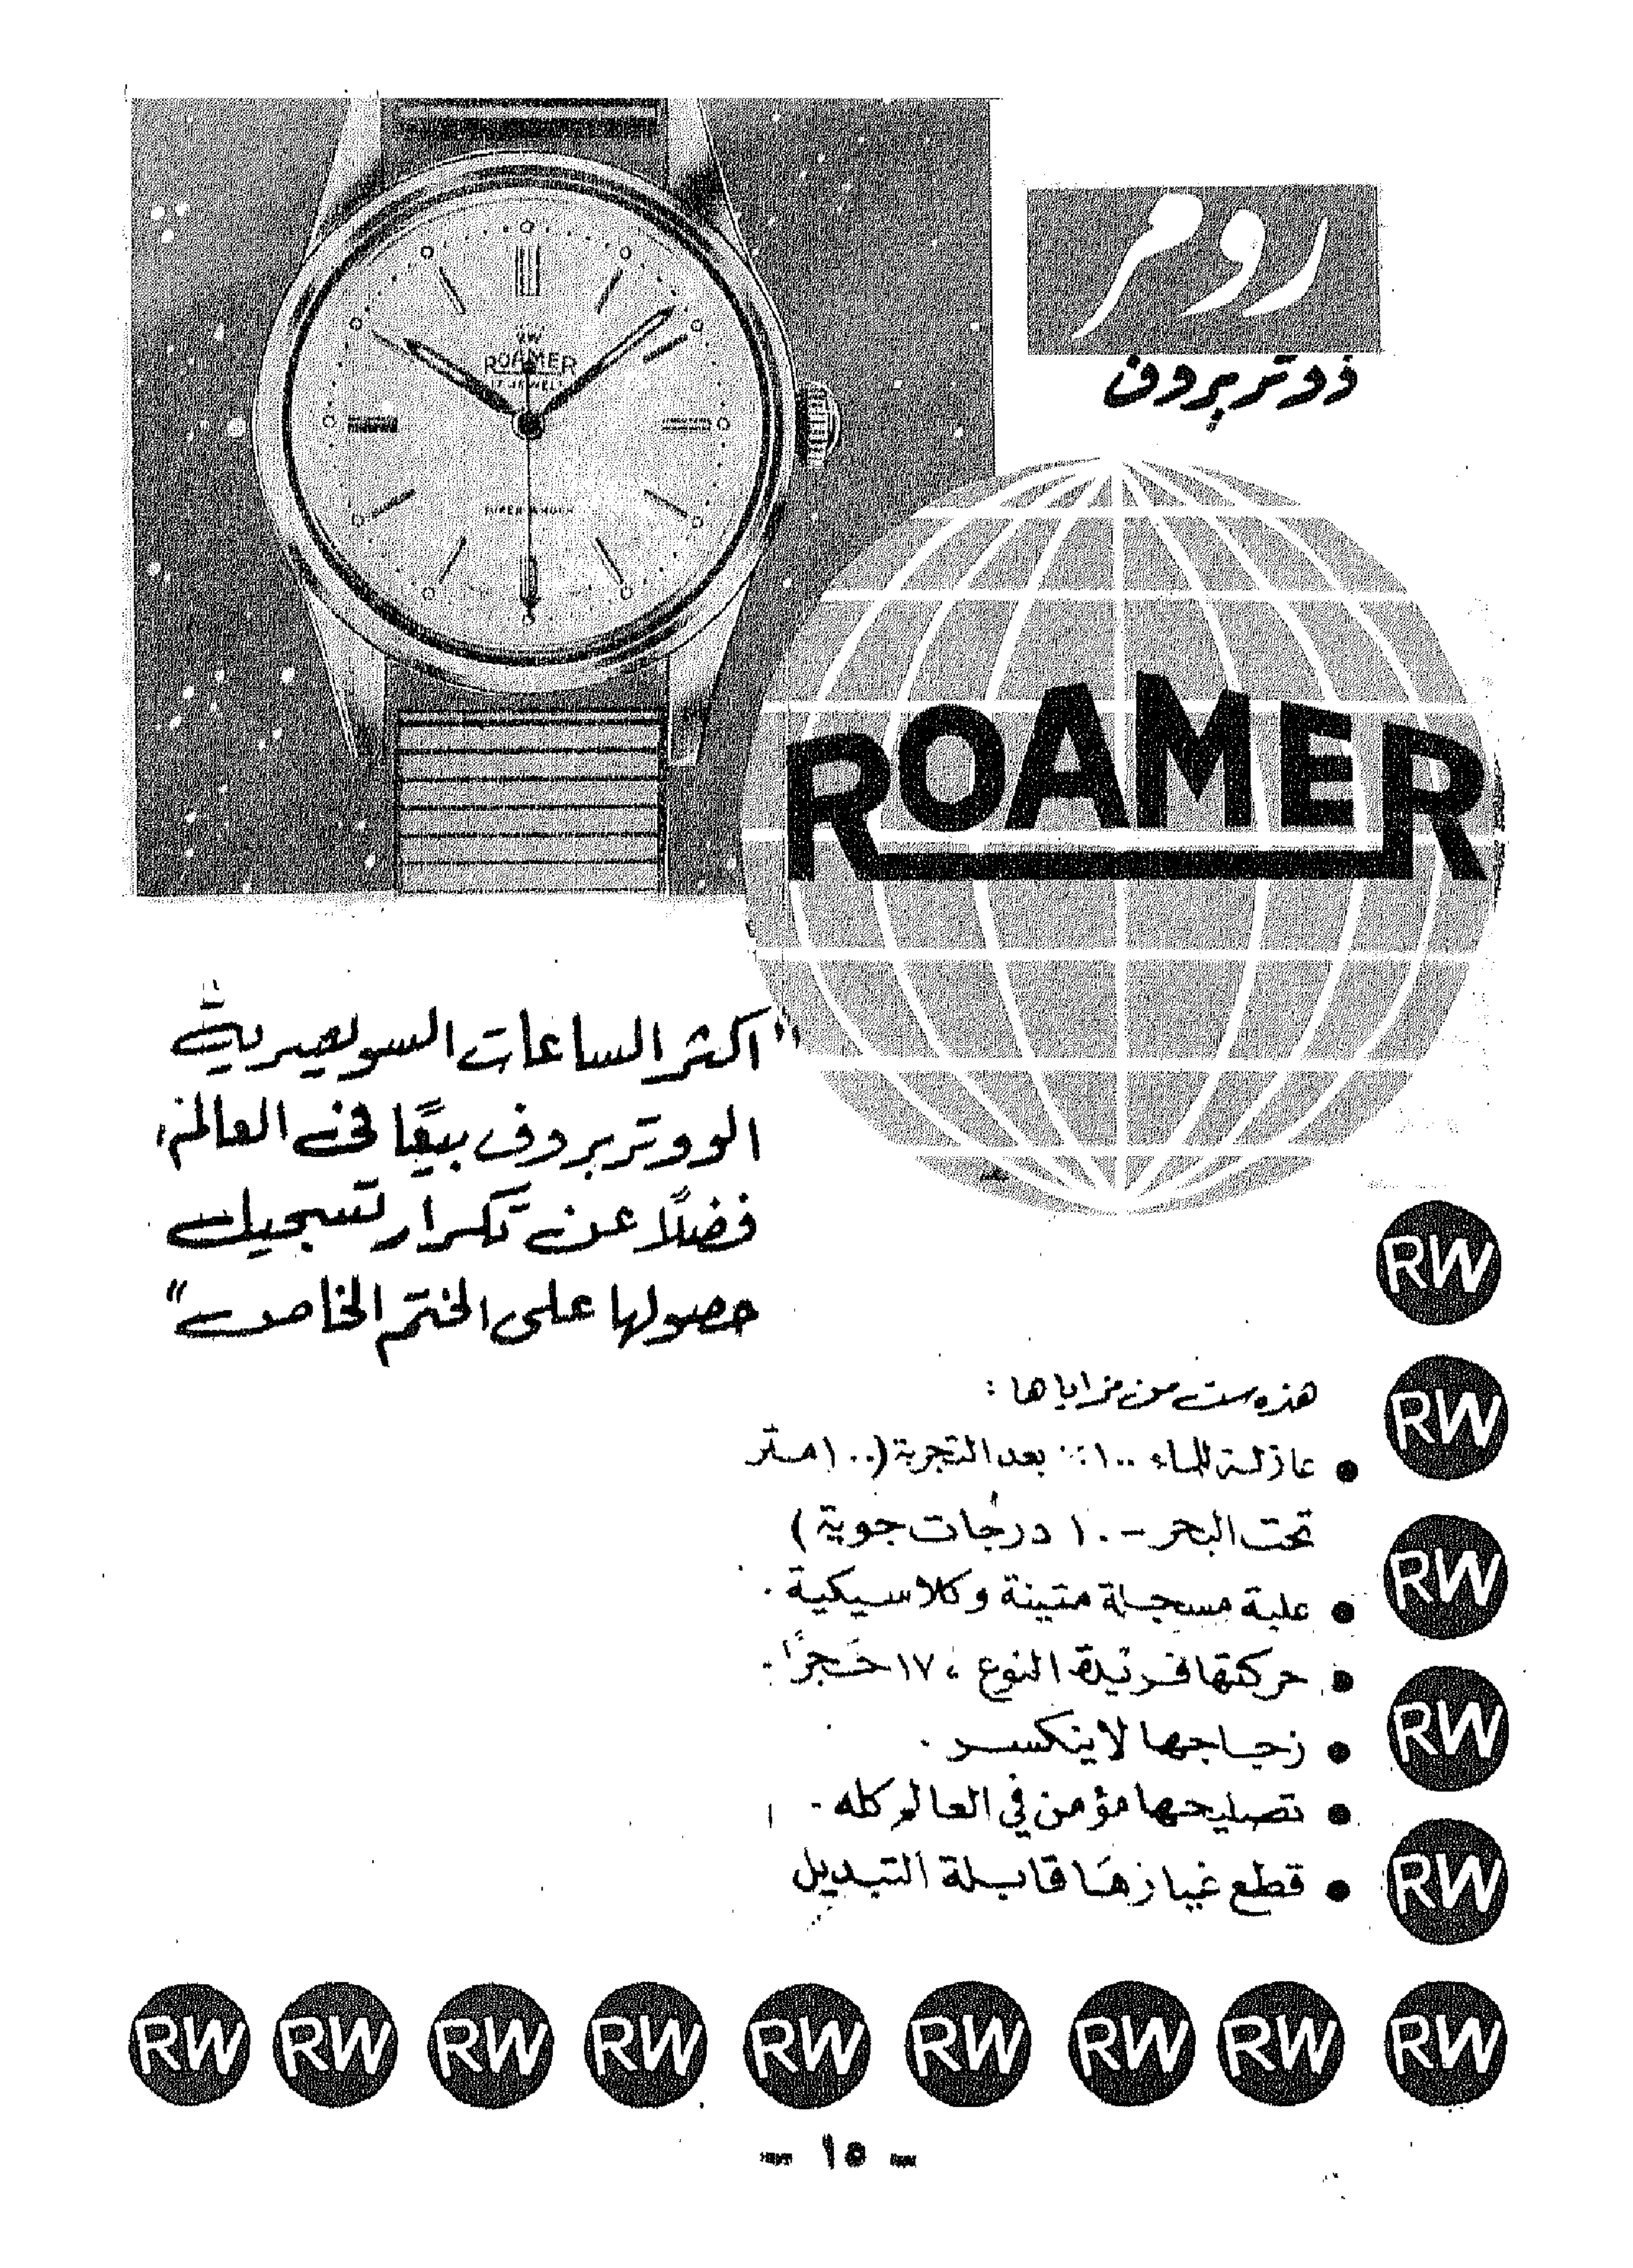 رومر
ذوتربروف
ROAMER
17 JEWELS
ROAMER
"اكثر الساعات السويسرية
الووتربروف بيعًا في العالم،
فضلًا عن تكرار تسجيل
حصولها على الختم الخاص"
هذه ست من مزاياها :
• عازلة للماء ١٠٠٪ بعد التجربة (١٠٠ متر
تحت البحر - ١٠ درجات جوية)
• علبة مسجلة متينة وكلاسيكية .
• حركتها فريدة النوع ، ١٧ حَجرًا .
• زجاجها لا ينكسر .
• تصليحها مؤمن في العالم كله .
• قطع غيارها قابلة التبديل
RW
RW
RW
RW
RW
RW RW RW RW RW RW RW RW RW
- ١٥ -